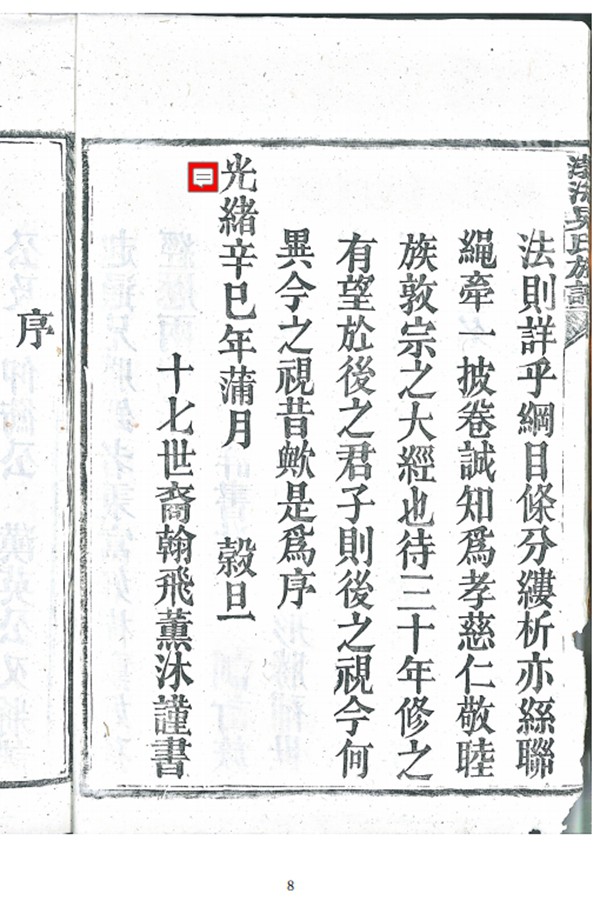 吳氏族譜
法則詳乎綱目條分縷析亦絲聯
繩牽一披卷誠知爲孝慈仁敬睦
族敦宗之大經也待三十年修之
有望於後之君子則後之視今何
異今之視昔歟是爲序
光緒辛巳年蒲月 穀旦
十七世裔翰飛薰沐謹書
序
8